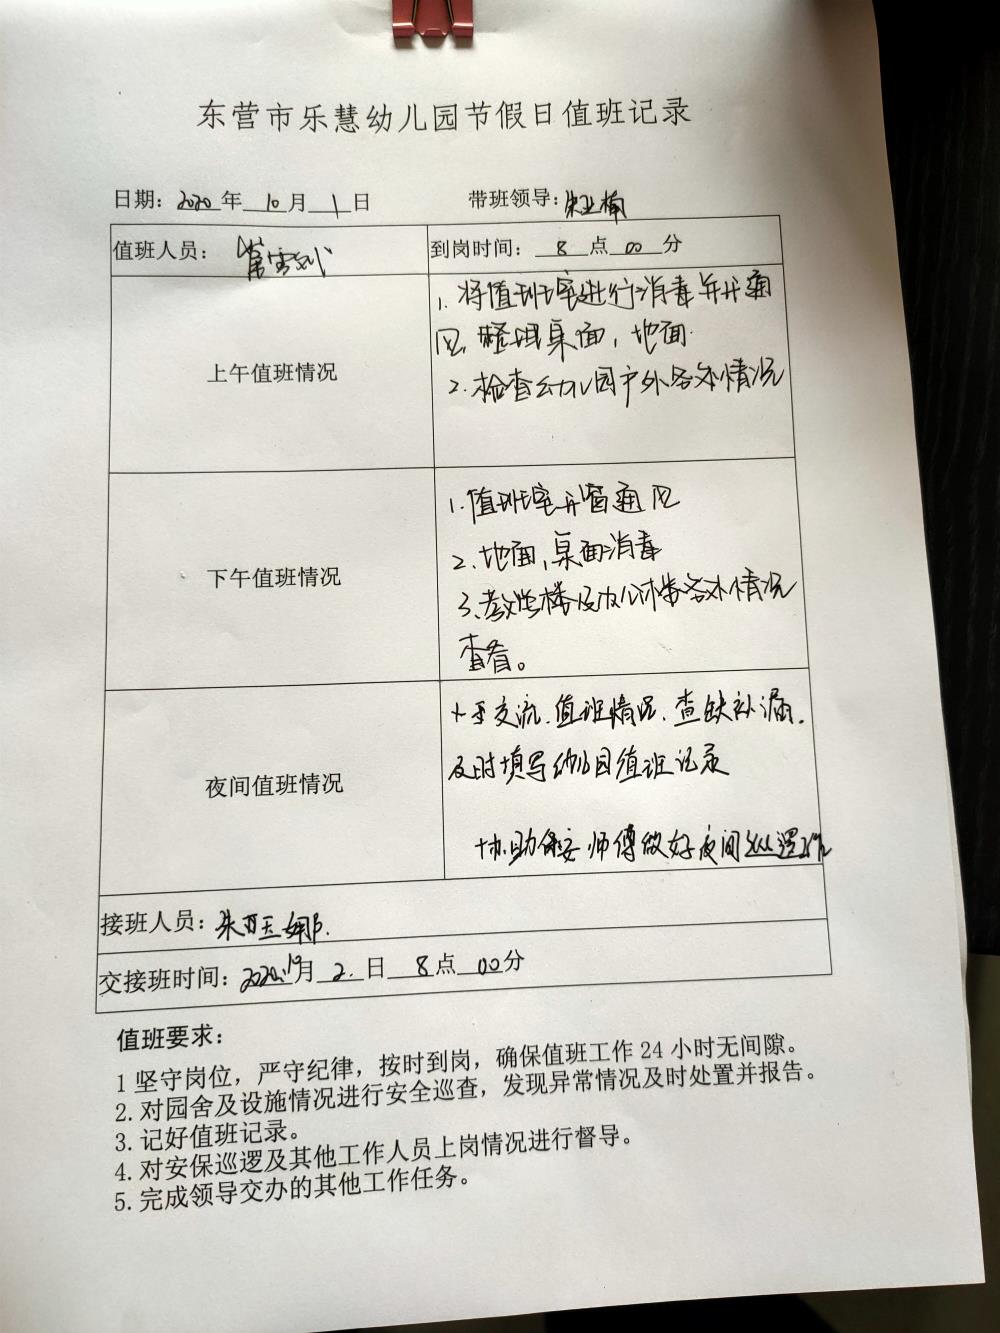 东营市乐慧幼儿园节假日值班记录
日期：2020年 10月 1日 带班领导：
值班人员： 到岗时间： 8 点 00 分
上午值班情况
1. 将值班室进行消毒并开通
风, 整理桌面，地面.
2. 检查幼儿园户外各处情况
下午值班情况
1. 值班室开窗通风
2. 地面、桌面消毒
3. 教学楼及办公楼各处情况
查看。
夜间值班情况
交流.值班情况.查缺补漏.
及时填写幼儿园值班记录
协助保安师傅做好夜间巡逻工作
接班人员：
交接班时间：2020.10月 2. 日 8 点 00分
值班要求：
1 坚守岗位，严守纪律，按时到岗，确保值班工作 24 小时无间隙。
2. 对园舍及设施情况进行安全巡查，发现异常情况及时处置并报告。
3. 记好值班记录。
4. 对安保巡逻及其他工作人员上岗情况进行督导。
5. 完成领导交办的其他工作任务。